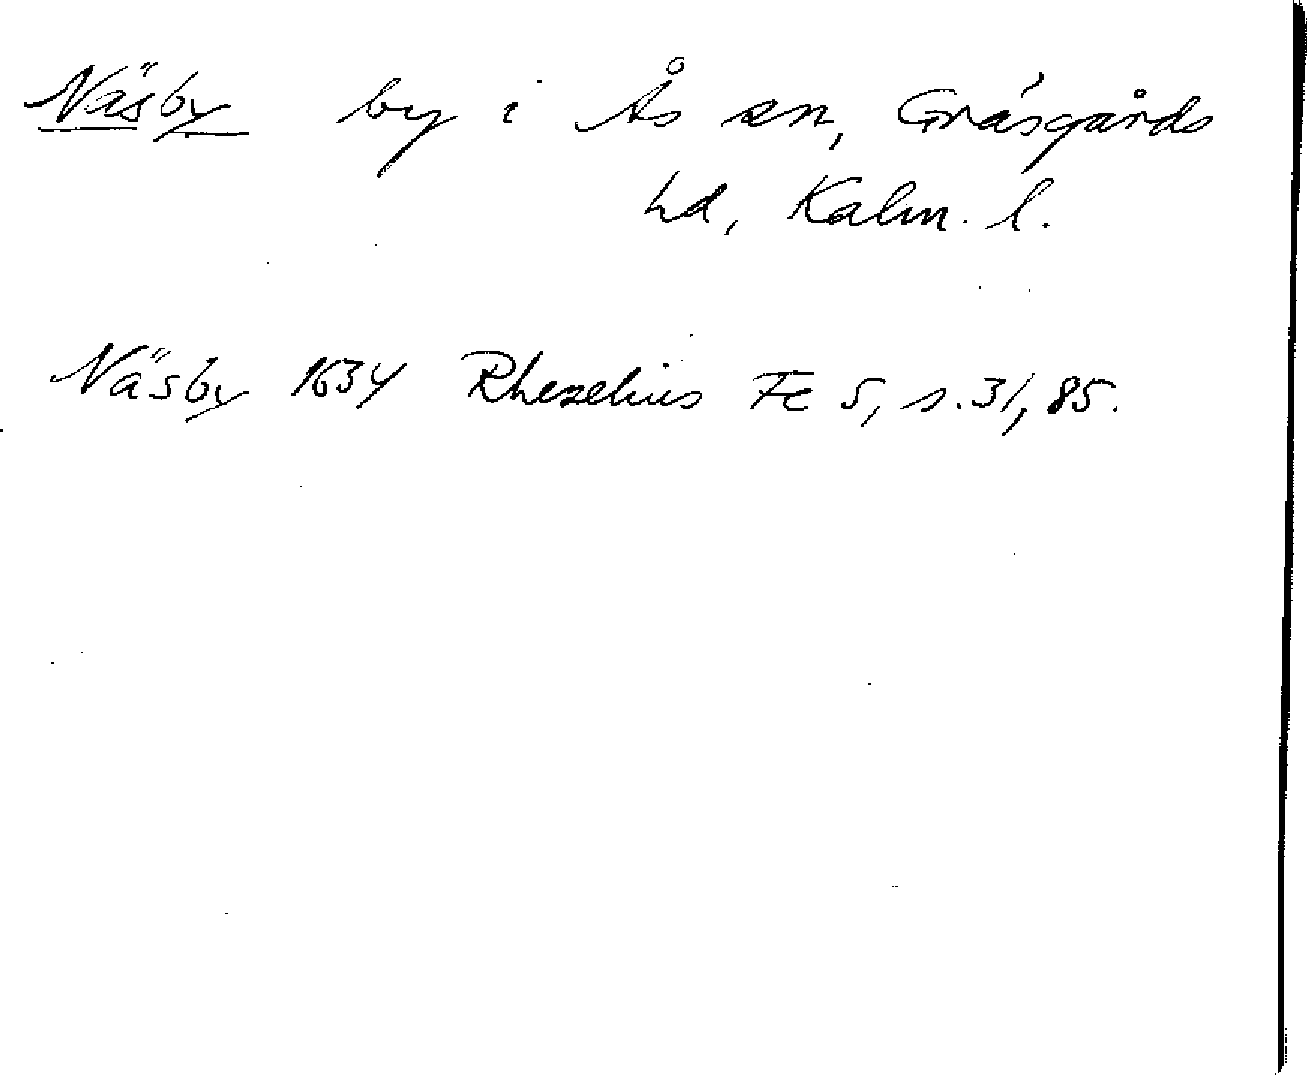 Näsby by i Ås sn, Gräsgårds
hd, Kalm. l.
Näsby 1634 Rhezelius Fc 5, s. 31, 85.